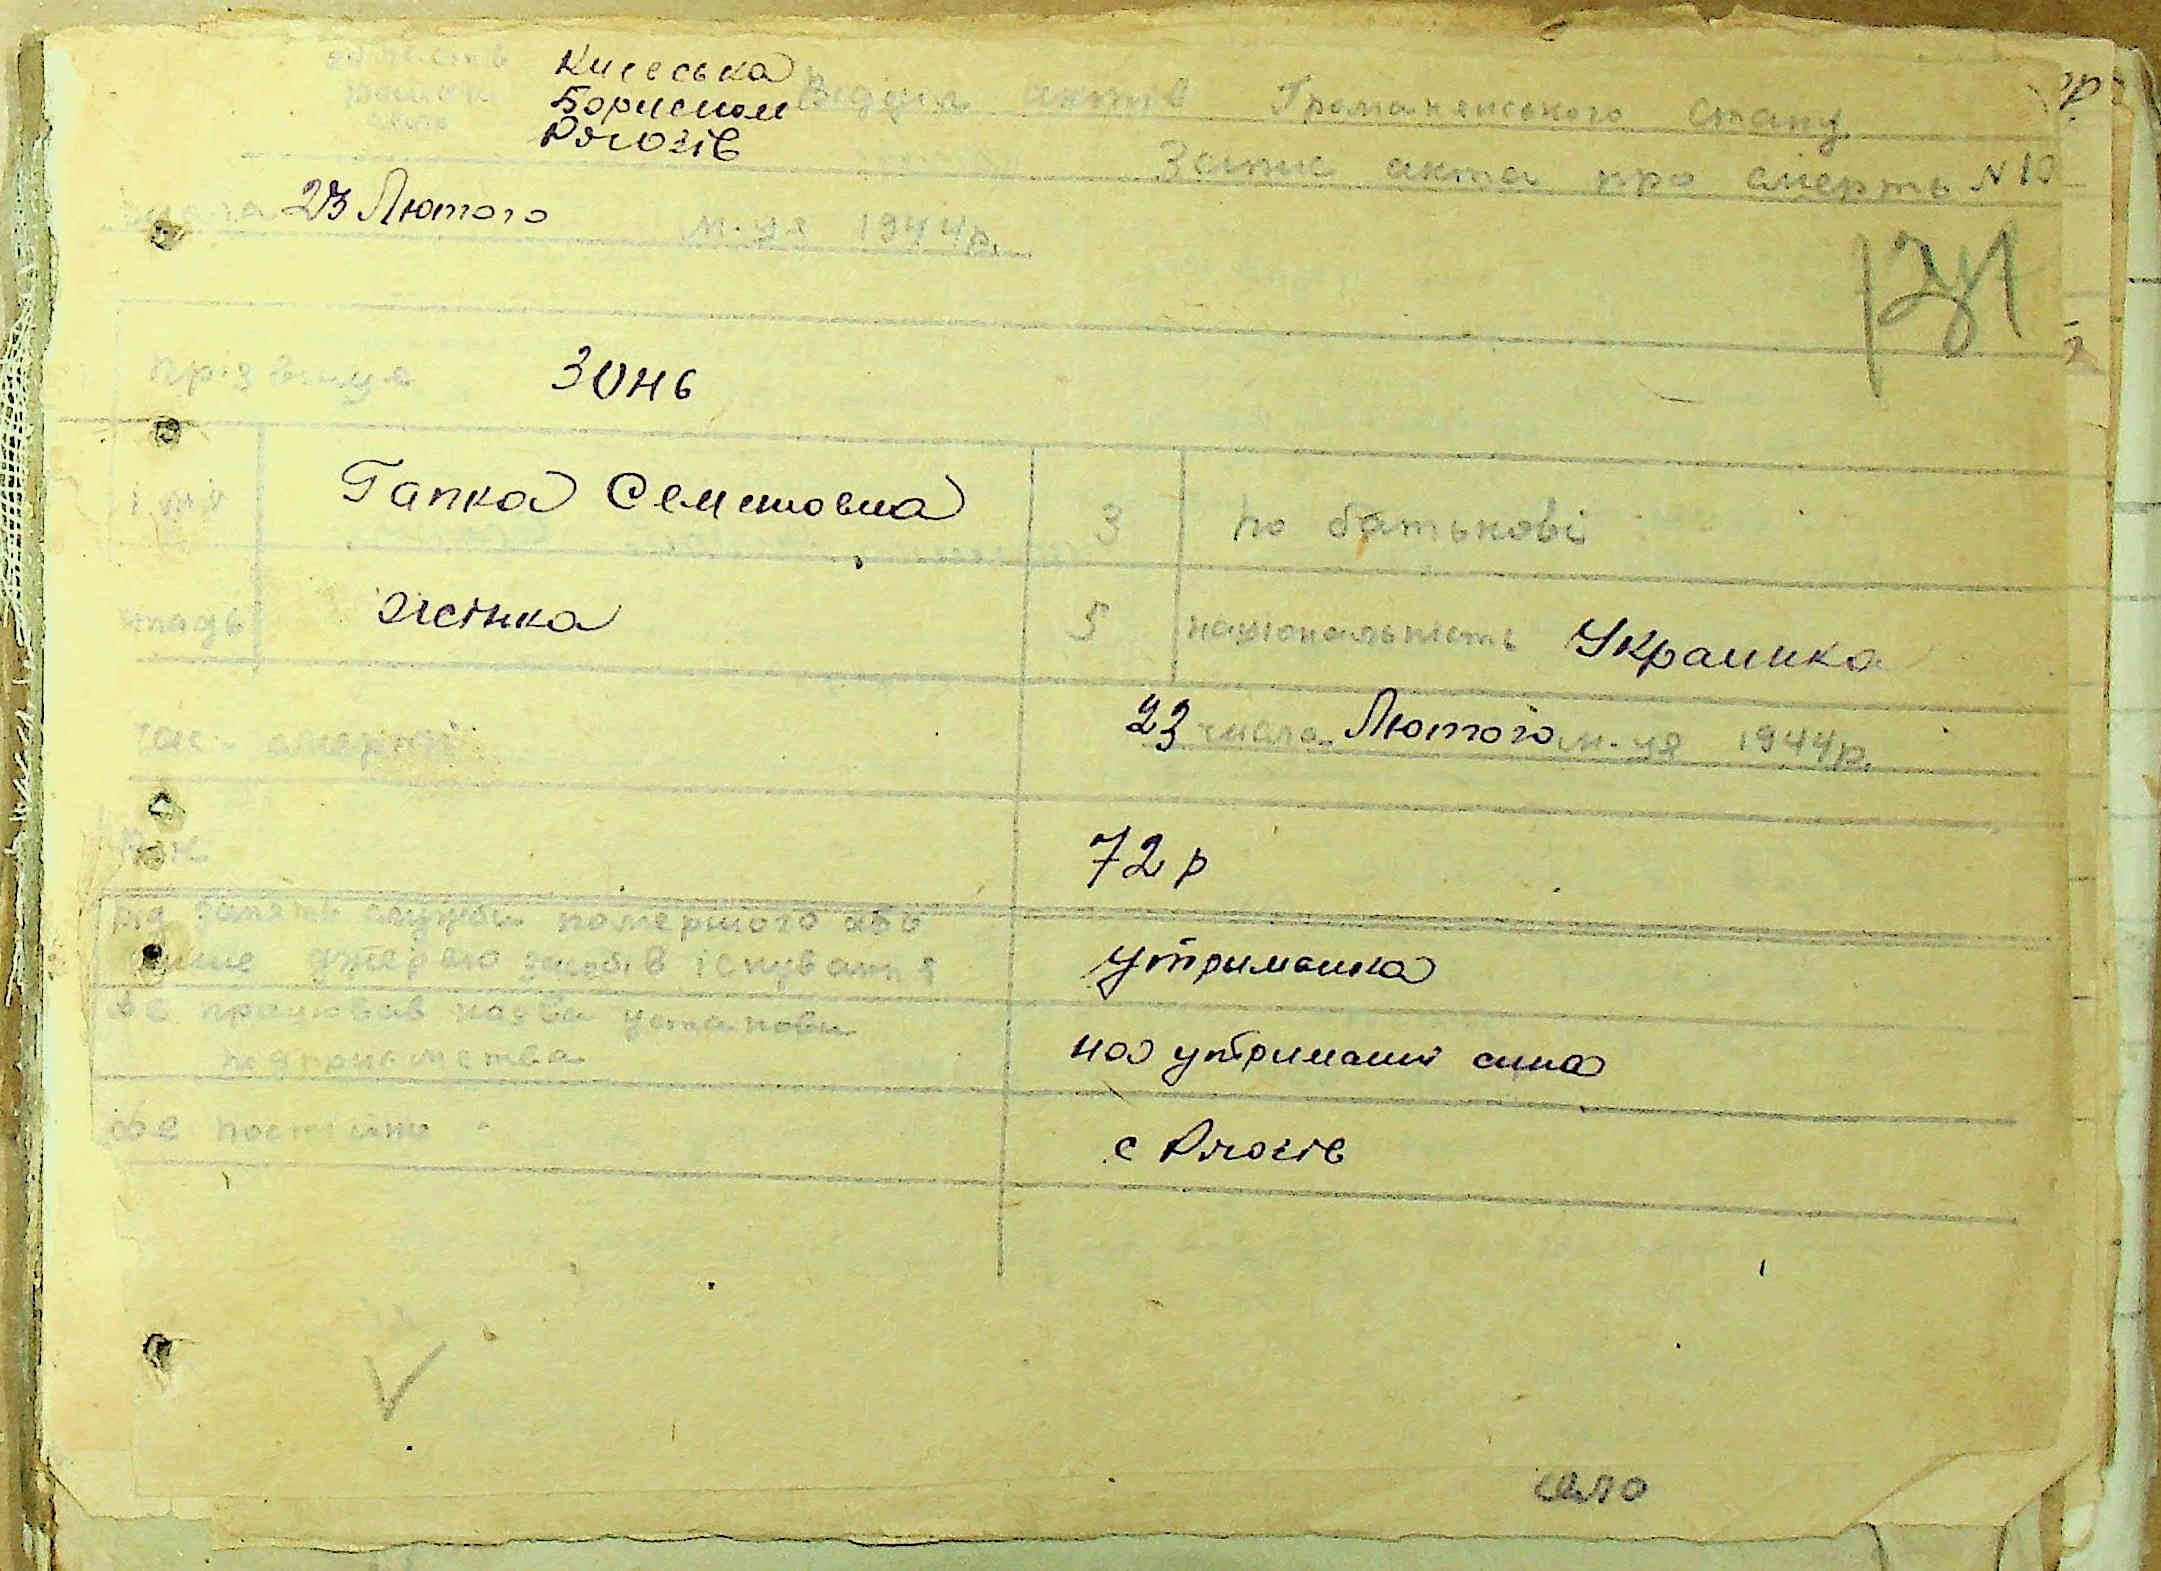 область Киеська
район Бориспол Відділ актів Громаненського стану
село Рягозів Запис акта про смерть N 10
числа 23 Лютого м-ця 1944р.
прізвище Зонь
імя Гапка Семеновна 3 по батькові
жінка 5 національність Украинка
час смерті 23 числа Лютого м-ця 1944р.
72 р
рід занять служби помершого або
інше джерело засобів існування утриманка
де працював назва установи
підприємства на утримані сина
де постійно с Рягозів
село